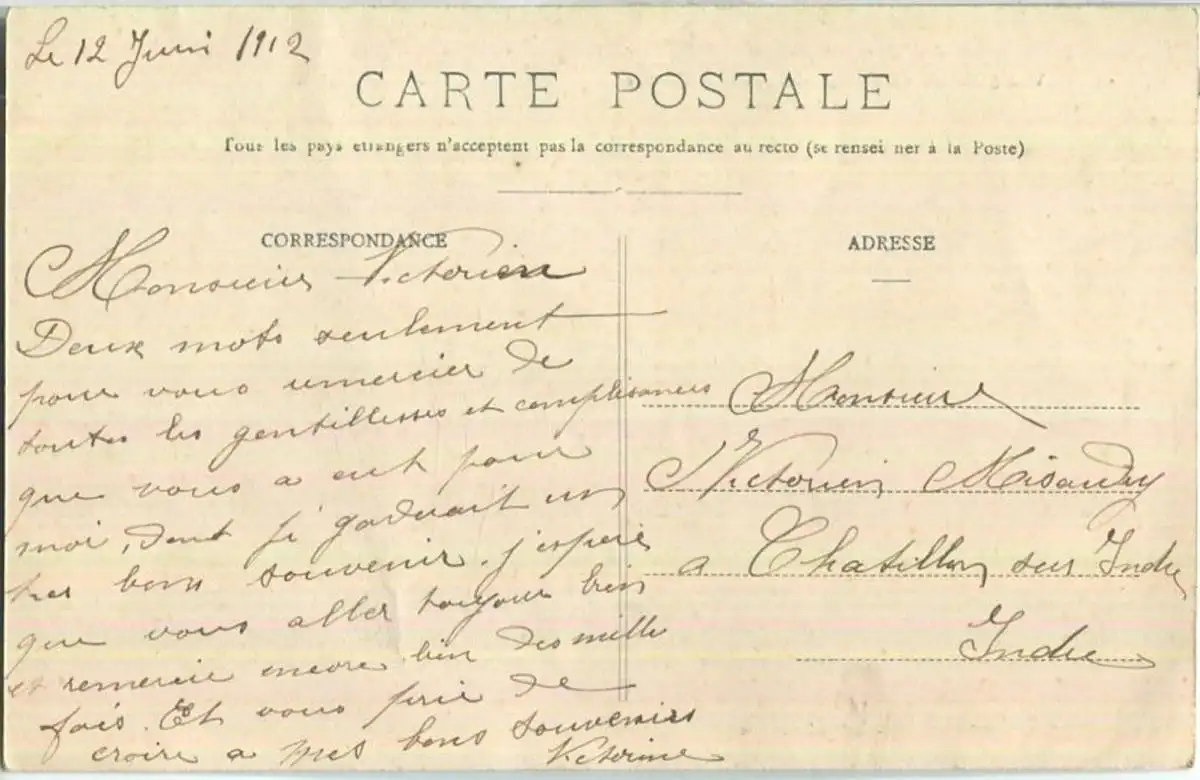 Le 12 Juin 1912
CARTE POSTALE
Tous les pays etrangers n'acceptent pas la correspondance au recto (se rensei ner à la Poste)
CORRESPONDANCE
Monsieur Victorien
Deux mots seulement
pour vous remercier de
toutes les gentillesses et complisances
que vous a eut pour
moi, dont je garderait un
tres bons souvenir. j'espere
que vous aller toujour bien
et remercie encore bien des mille
fois. Et vous prie de
croire a mes bons souvenirs
Victorine
ADRESSE
Monsieur
Victorien
a Chatillon sur Indre
Indre